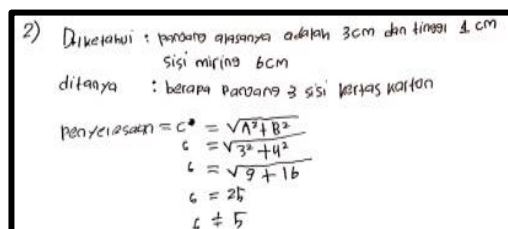 2) Diketahui : panjang alasanya adalah 3cm dan tinggi 4 cm
sisi miring 6cm
ditanya : berapa Panjang 3 sisi kertas karton
penyelesaian = c = √A²+B²
c = √3²+4²
c = √9+16
c = 25
c ≠ 5